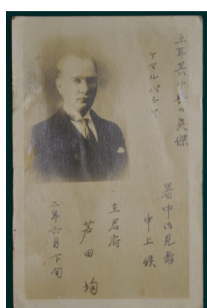 土耳其の英傑
ケマルパシャ
暑中御見舞
申上候
土君府
芦田均
二年六月下旬